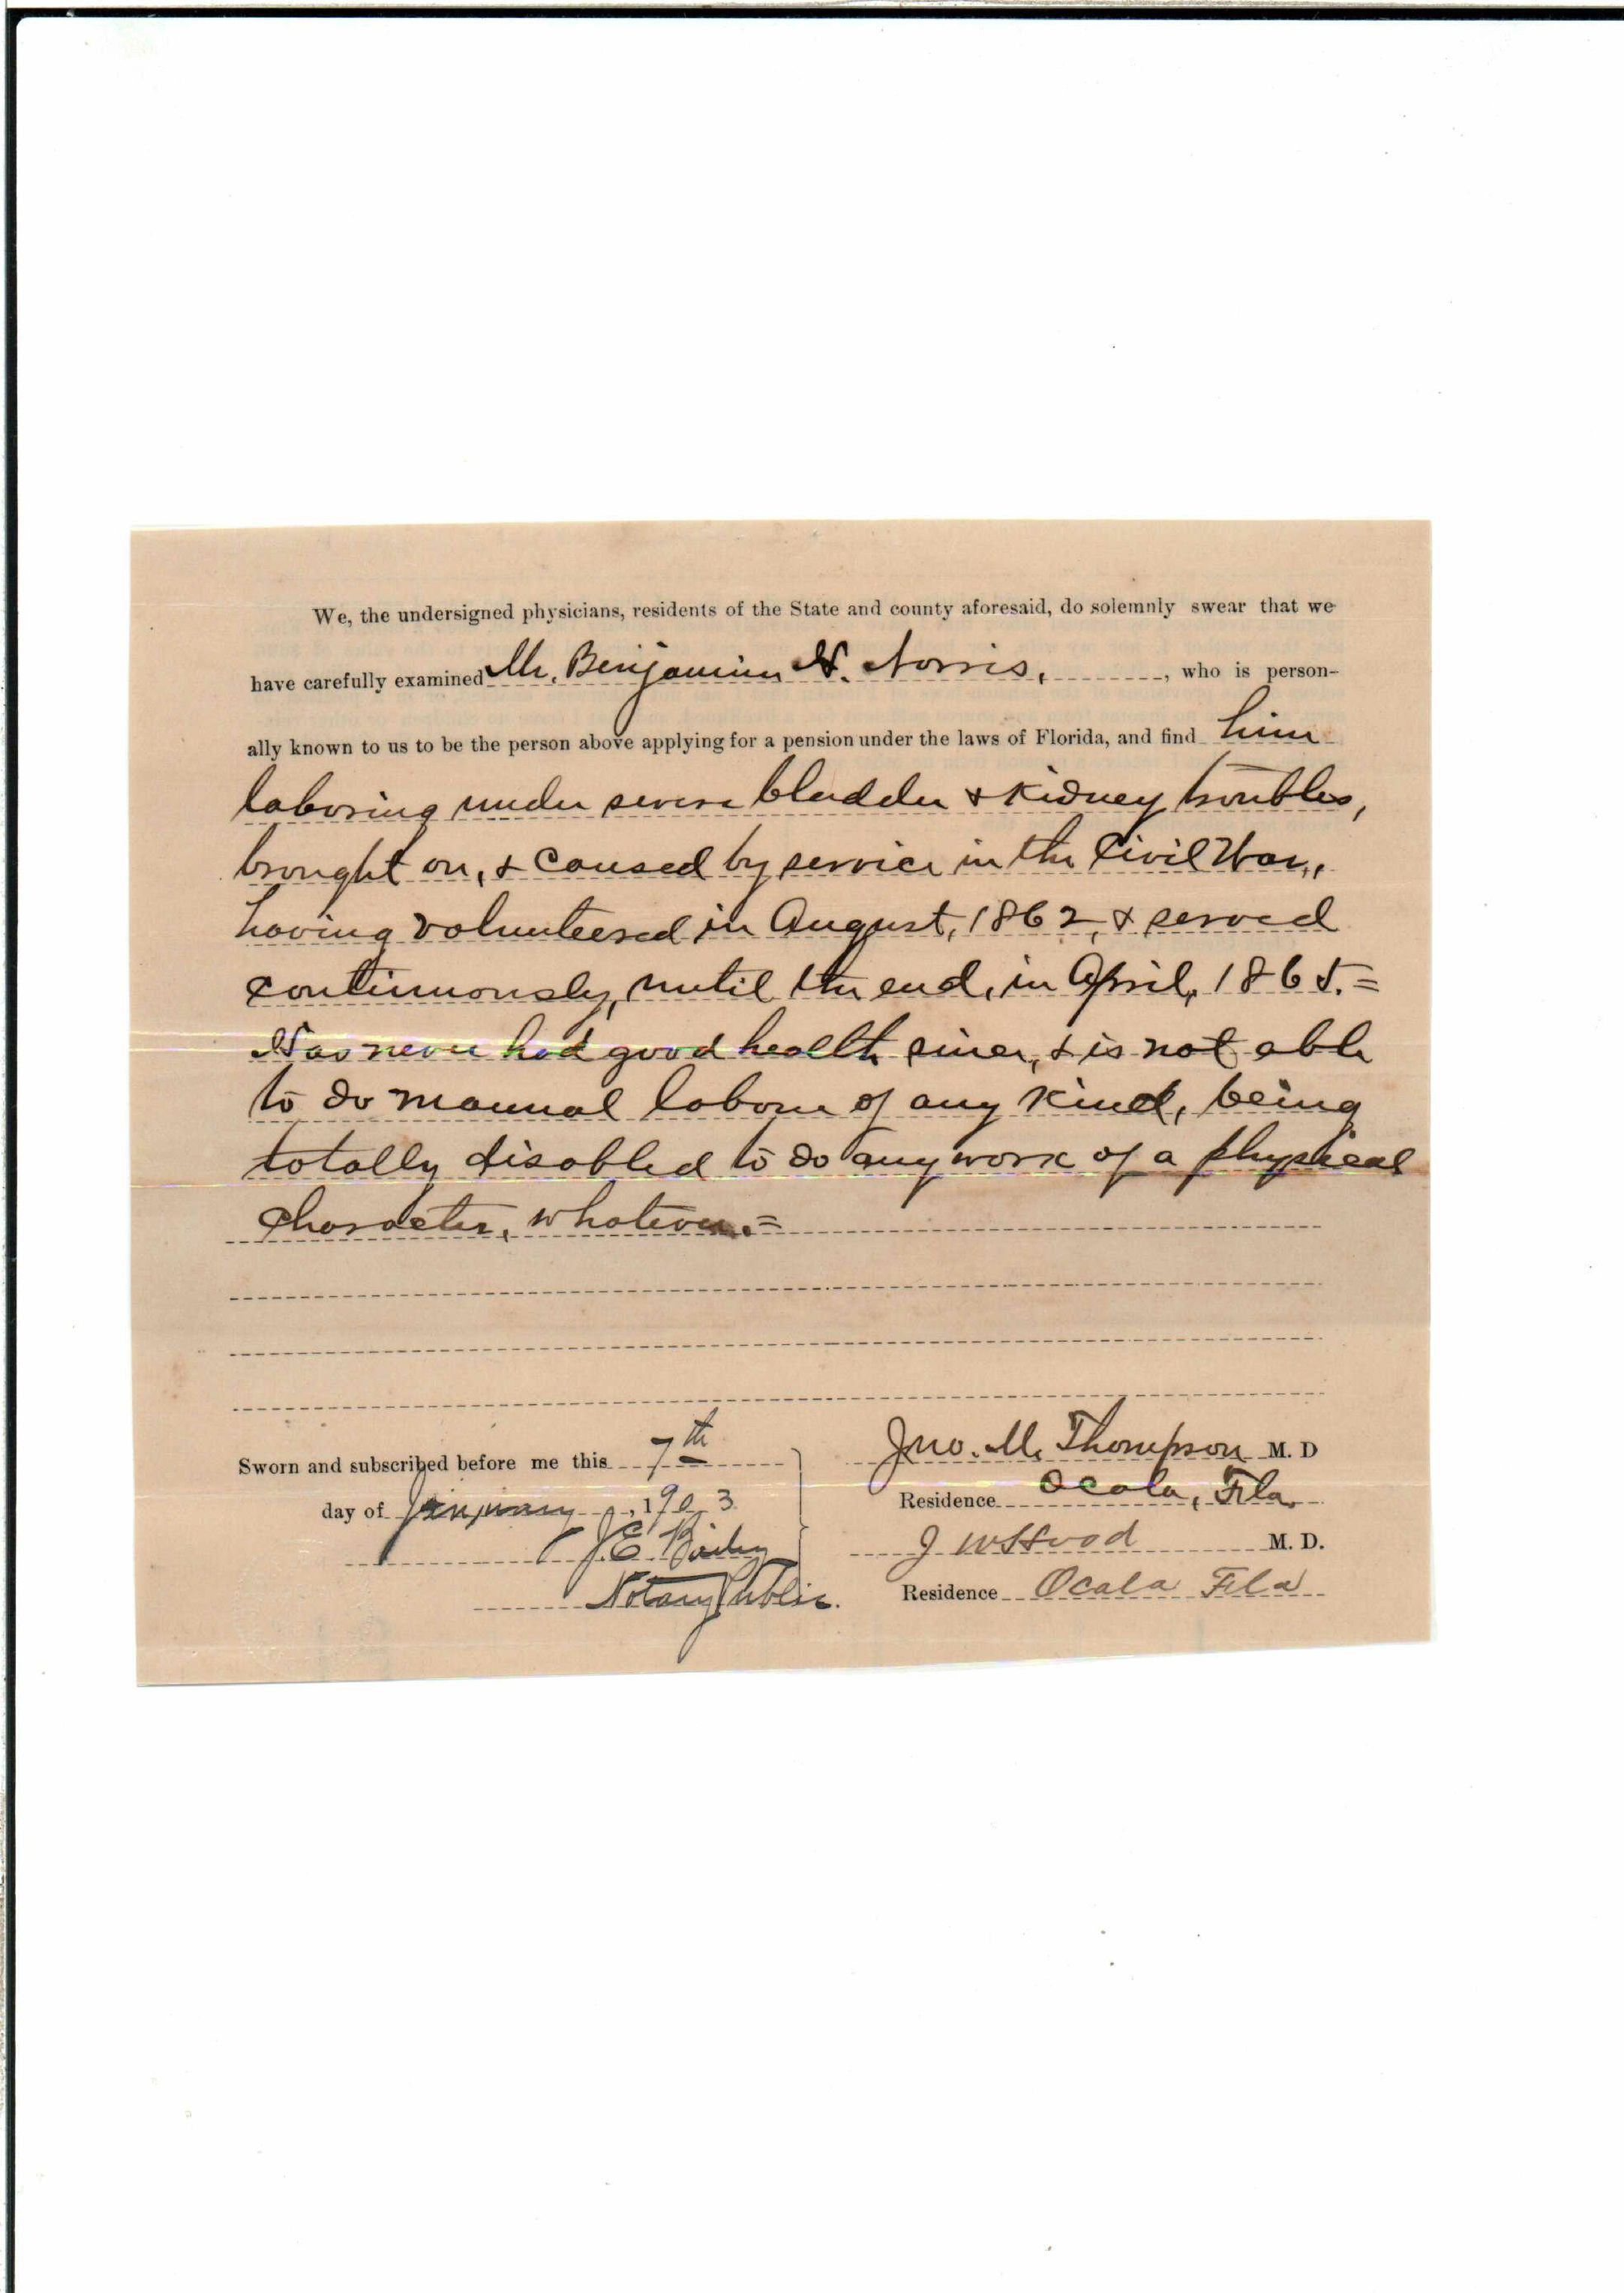 We, the undersigned physicians, residents of the State and county aforesaid, do solemnly swear that we
have carefully examined Mr. Benjamin H. Norris, , who is person-
ally known to us to be the person above applying for a pension under the laws of Florida, and find him
laboring under severe bladder & kidney troubles,
brought on, & caused by service in the Civil War,
having volunteered in August, 1862, & served
continuously, until the end, in April, 1865. =
Has never had good health since, & is not able
to do manual labor of any kind, being
totally disabled to do any work of a physical
character, whatever. =
Sworn and subscribed before me this 7th
day of January, 1903
J.E. Bailey
Notary Public.
Jno. M. Thompson M. D
Residence Ocala, Fla.
J W Hood M. D.
Residence Ocala Fla